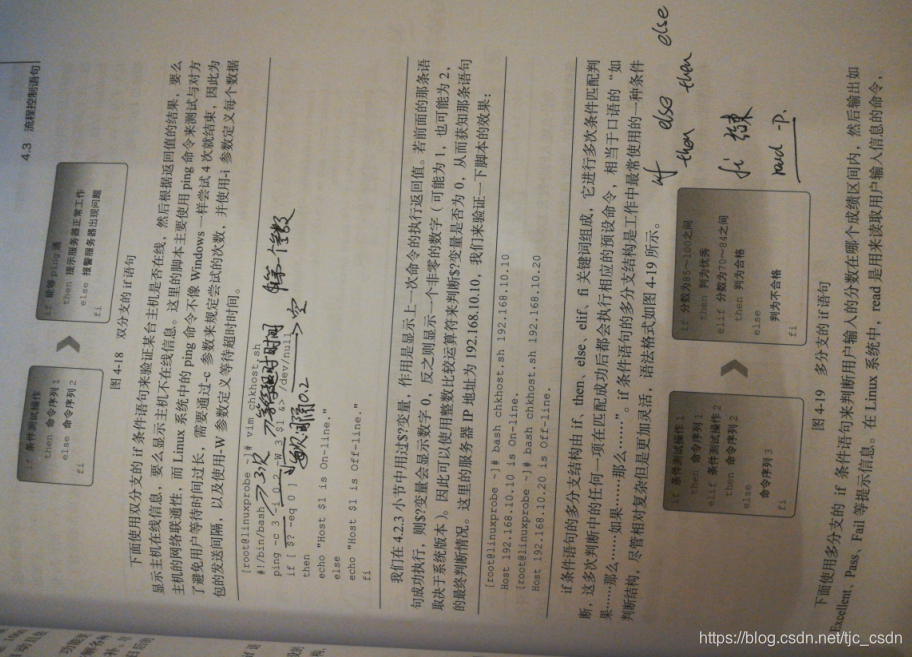 4.3 流程控制语句
if 条件测试操作
then 命令序列 1
else 命令序列 2
fi
if 能够ping通
then 提示服务器正常工作
else 报警服务器出现问题
fi
图 4-18 双分支的 if 语句
下面使用双分支的 if 条件语句来验证某台主机是否在线，然后根据返回值的结果，要么
显示主机在线信息，要么显示主机不在线信息。这里的脚本主要使用 ping 命令来测试与对方
主机的网络联通性，而 Linux 系统中的 ping 命令不像 Windows 一样尝试 4 次就结束，因此为
了避免用户等待时间过长，需要通过-c 参数来规定尝试的次数，并使用-i 参数定义每个数据
包的发送间隔，以及使用-W 参数定义等待超时时间。
[root@linuxprobe ~]# vim chkhost.sh
#!/bin/bash
ping -c 3 -i 0.2 -W 3 $1 &> /dev/null
if [ $? -eq 0 ]
then
echo "Host $1 is On-line."
else
echo "Host $1 is Off-line."
fi
3次
等待超时时间
间隔0.2
空
第一个参数
我们在 4.2.3 小节中用过$?变量，作用是显示上一次命令的执行返回值。若前面的那条语
句成功执行，则$?变量会显示数字 0，反之则显示一个非零的数字（可能为 1，也可能为 2，
取决于系统版本）。因此可以使用整数比较运算符来判断$?变量是否为 0，从而获知那条语句
的最终判断情况。这里的服务器 IP 地址为 192.168.10.10，我们来验证一下脚本的效果：
[root@linuxprobe ~]# bash chkhost.sh 192.168.10.10
Host 192.168.10.10 is On-line.
[root@linuxprobe ~]# bash chkhost.sh 192.168.10.20
Host 192.168.10.20 is Off-line.
if 条件语句的多分支结构由 if、then、else、elif、fi 关键词组成，它进行多次条件匹配判
断，这多次判断中的任何一项在匹配成功后都会执行相应的预设命令，相当于口语的“如
果……那么……如果……那么……”。if 条件语句的多分支结构是工作中最常使用的一种条件
判断结构，尽管相对复杂但是更加灵活，语法格式如图 4-19 所示。
if else else
then then
fi 结束
read -p.
if 条件测试操作 1
then 命令序列 1
elif 条件测试操作 2
then 命令序列 2
else
命令序列 3
fi
if 分数为85~100之间
then 判为优秀
elif 分数为70~84之间
then 判为合格
else
判为不合格
fi
图 4-19 多分支的 if 语句
下面使用多分支的 if 条件语句来判断用户输入的分数在哪个成绩区间内，然后输出如
Excellent、Pass、Fail 等提示信息。在 Linux 系统中，read 是用来读取用户输入信息的命令，
https://blog.csdn.net/tjc_csdn